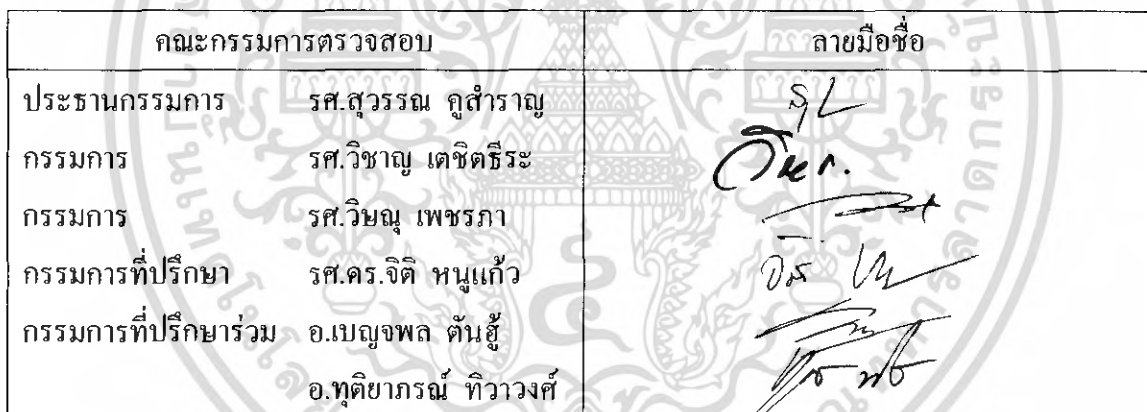 คณะกรรมการตรวจสอบ ลายมือชื่อ
ประธานกรรมการ รศ.สุวรรณ คูสำราญ
กรรมการ รศ.วิชาญ เตชิตธีระ
กรรมการ รศ.วิษณุ เพชรภา
กรรมการที่ปรึกษา รศ.ดร.จิติ หนูแก้ว
กรรมการที่ปรึกษาร่วม อ.เบญจพล ตันฮู้
อ.ทุติยาภรณ์ ทิวาวงศ์